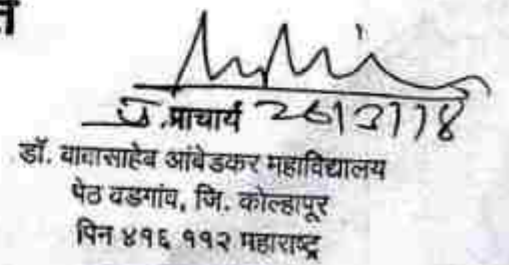 त
प्र.प्राचार्य 26/3/18
डॉ. बाबासाहेब आंबेडकर महाविद्यालय
पेठ वडगांव, जि. कोल्हापूर
पिन ४१६ ११२ महाराष्ट्र